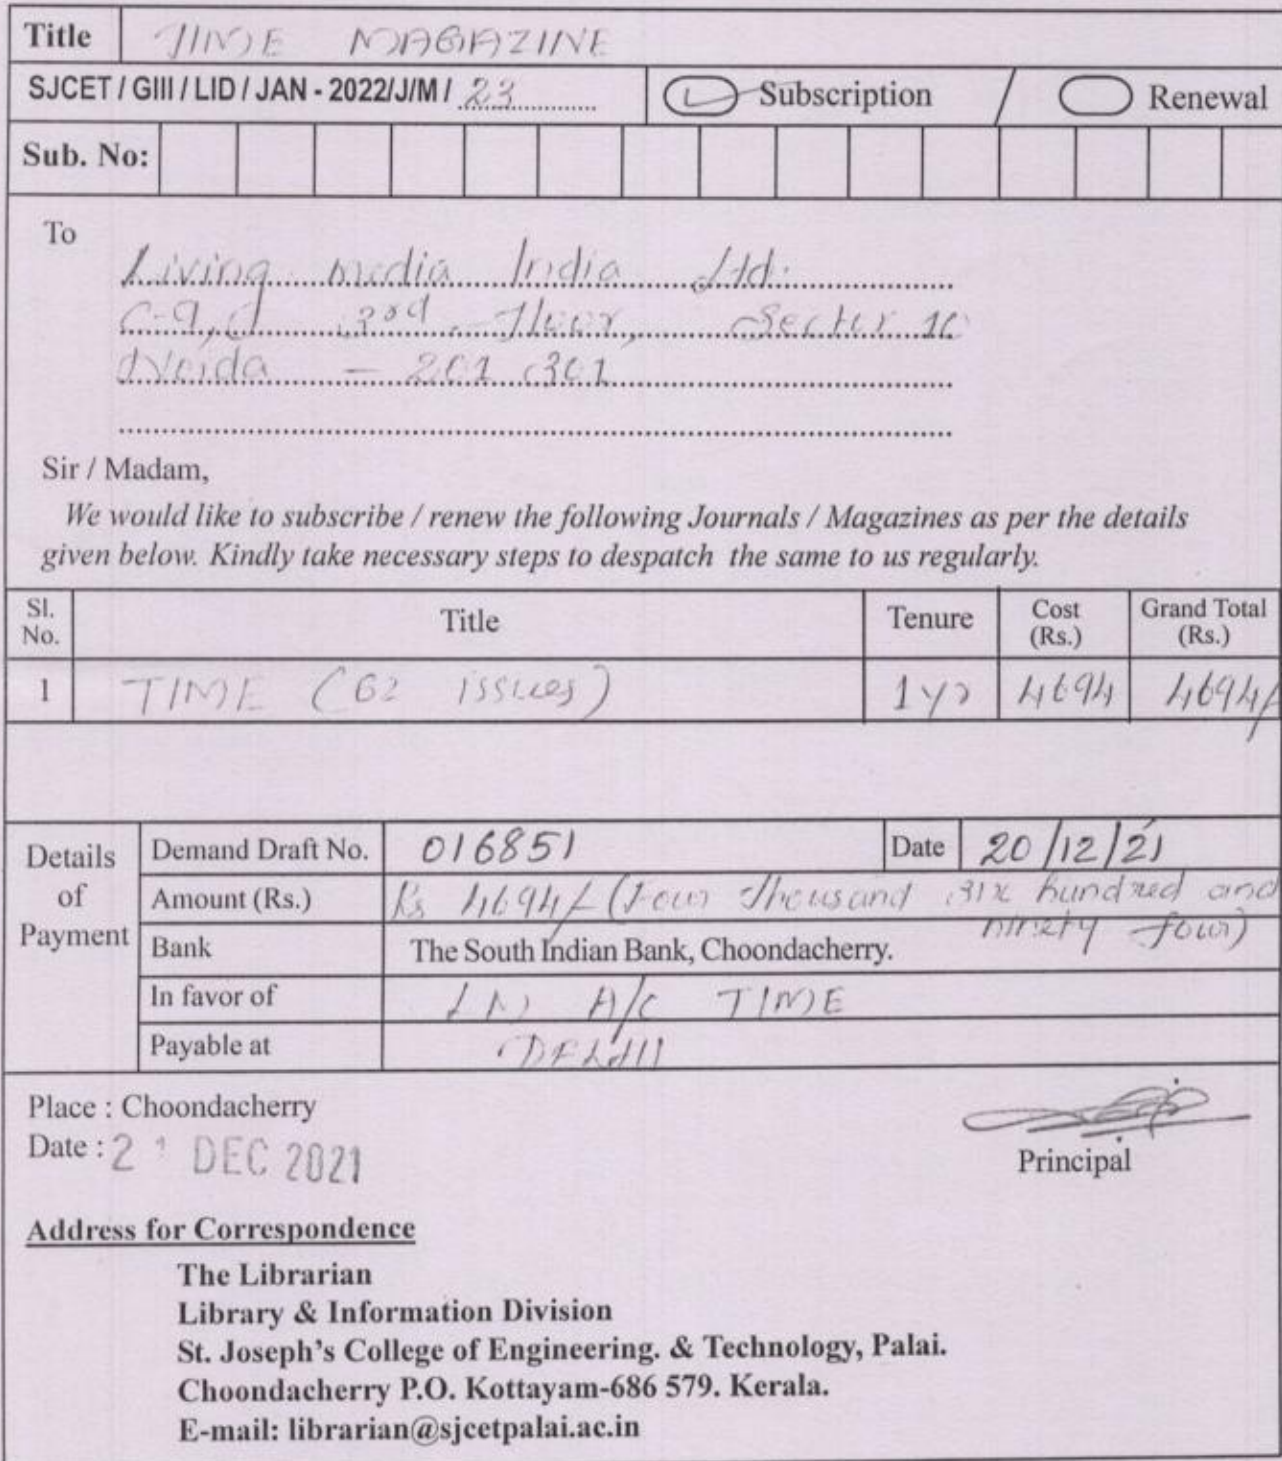 Title TIME MAGAZINE
SJCET / GIII / LID / JAN - 2022/J/M/ 23 Subscription / Renewal
Sub. No:
To
Living media India Ltd.
C-9, 3rd Floor, Sector 10
Noida - 201 301
Sir / Madam,
We would like to subscribe / renew the following Journals / Magazines as per the details
given below. Kindly take necessary steps to despatch the same to us regularly.
Sl. No. Title Tenure Cost (Rs.) Grand Total (Rs.)
1 TIME (62 issues) 1 yr 4694 4694/-
Details of Payment
Demand Draft No. 016851 Date 20/12/21
Amount (Rs.) Rs 4694/- (Four Thousand six hundred and
ninety four)
Bank The South Indian Bank, Choondacherry.
In favor of A/C TIME
Payable at DELHI
Place : Choondacherry
Date : 21 DEC 2021
Principal
Address for Correspondence
The Librarian
Library & Information Division
St. Joseph's College of Engineering. & Technology, Palai.
Choondacherry P.O. Kottayam-686 579. Kerala.
E-mail: librarian@sjcetpalai.ac.in